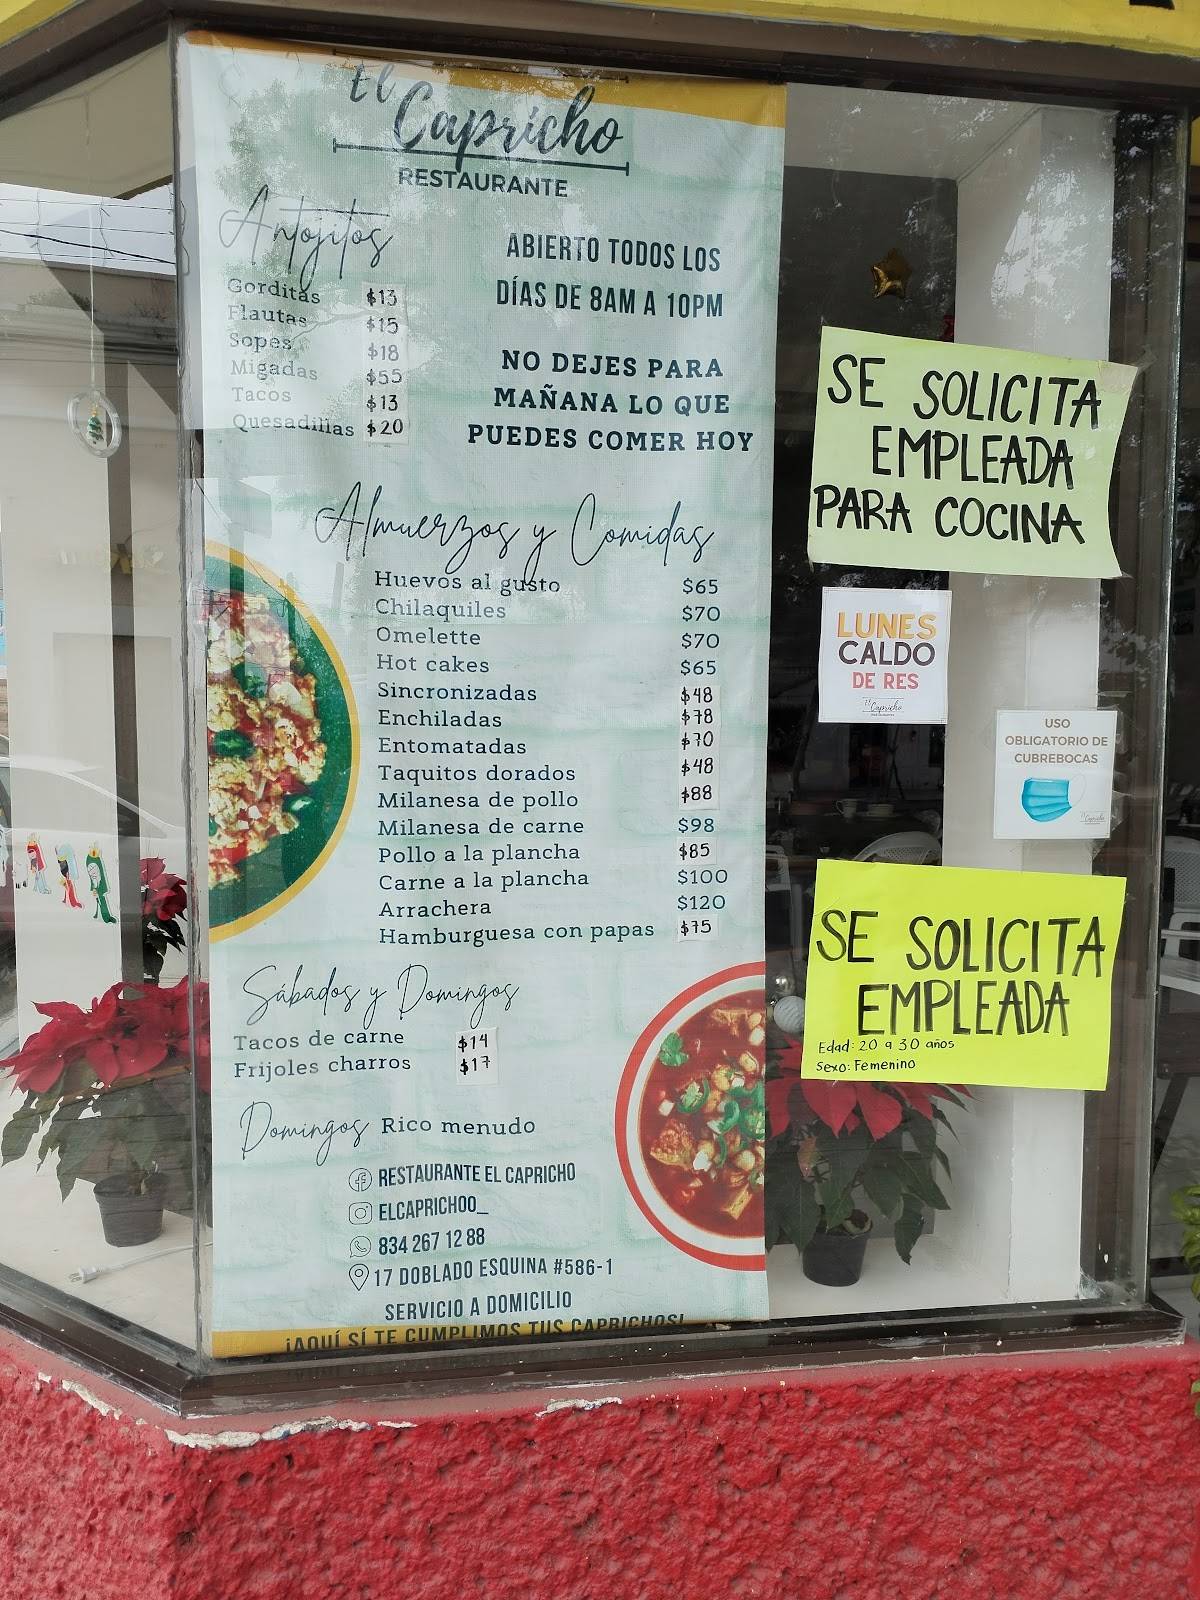 El
Capricho
RESTAURANTE
Antojitos
Gorditas $13
Flautas $15
Sopes $18
Migadas $55
Tacos $13
Quesadillas $20
ABIERTO TODOS LOS
DÍAS DE 8AM A 10PM
NO DEJES PARA
MAÑANA LO QUE
PUEDES COMER HOY
Almuerzos y Comidas
Huevos al gusto $65
Chilaquiles $70
Omelette $70
Hot cakes $65
Sincronizadas $48
Enchiladas $78
Entomatadas $70
Taquitos dorados $48
Milanesa de pollo $88
Milanesa de carne $98
Pollo a la plancha $85
Carne a la plancha $100
Arrachera $120
Hamburguesa con papas $75
Sábados y Domingos
Tacos de carne $14
Frijoles charros $17
Domingos Rico menudo
RESTAURANTE EL CAPRICHO
ELCAPRICHOO_
834 267 12 88
17 DOBLADO ESQUINA #586-1
SERVICIO A DOMICILIO
¡AQUÍ SÍ TE CUMPLIMOS TUS CAPRICHOS!
SE SOLICITA
EMPLEADA
PARA COCINA
LUNES
CALDO
DE RES
El Capricho
RESTAURANTE
USO
OBLIGATORIO DE
CUBREBOCAS
El Capricho
SE SOLICITA
EMPLEADA
Edad: 20 a 30 años
Sexo: Femenino